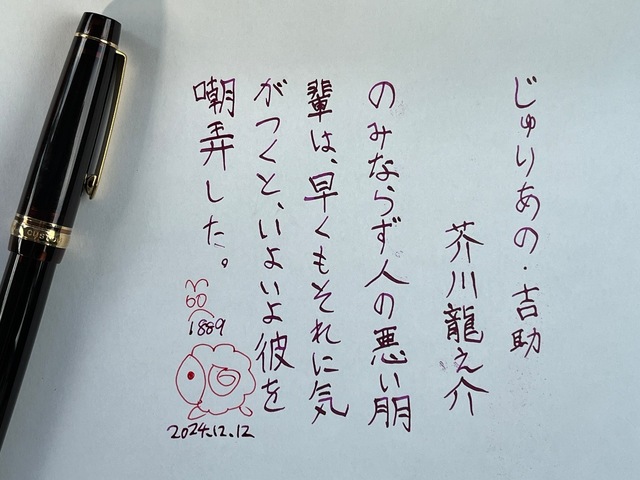 じゅりあの・吉助
芥川龍之介
のみならず人の悪い朋
輩は、早くもそれに気
がつくと、いよいよ彼を
嘲弄した。
60
1889
2024.12.12